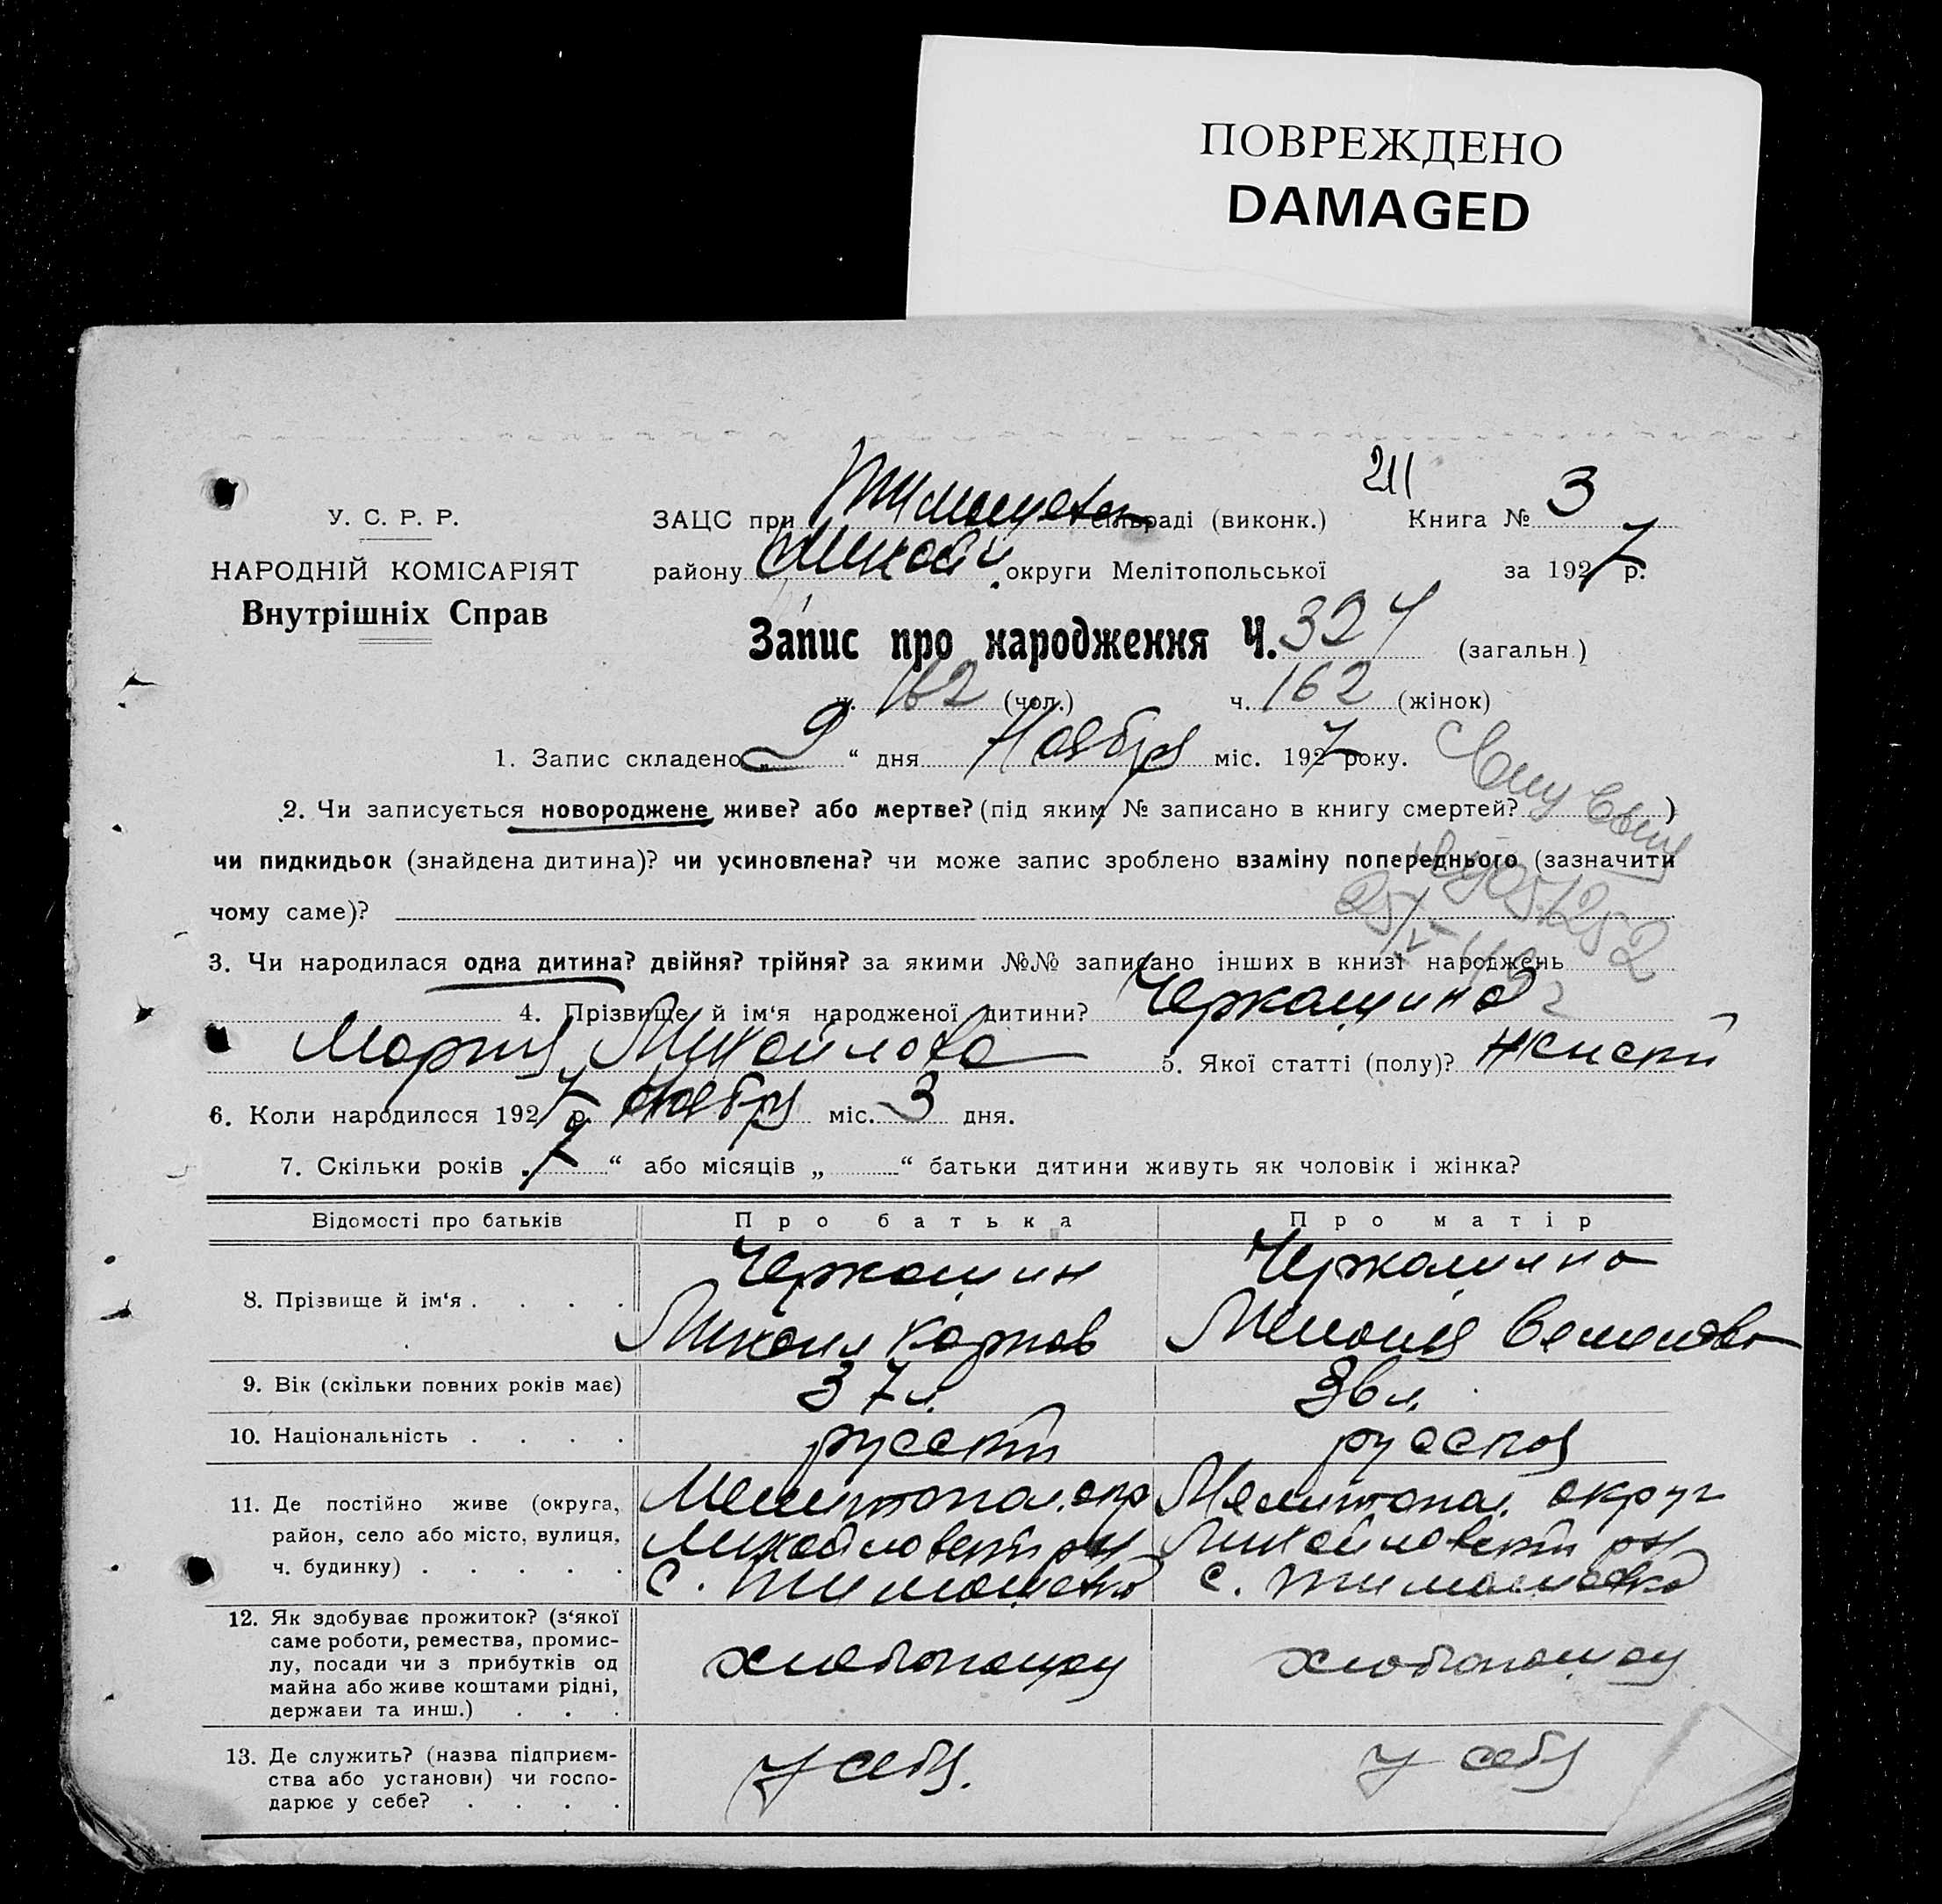 ПОВРЕЖДЕНО
DAMAGED
211
У. С. Р. Р.
НАРОДНІЙ КОМІСАРІЯТ
Внутрішніх Справ
ЗАЦС при Тимошев сільраді (виконк.) Книга № 3
району Михай округи Мелітопольської за 1927 р.
Запис про народження Ч. 324 (загальн.)
ч. 162 (чол.) ч. 162 (жінок)
1. Запис складено „ 9 “ дня Ноября міс. 1927 року.
2. Чи записується новороджене живе? або мертве? (під яким № записано в книгу смертей? )
чи пидкидьок (знайдена дитина)? чи усиновлена? чи може запис зроблено взаміну попереднього (зазначити
чому саме)?
3. Чи народилася одна дитина? двійня? трійня? за якими №№ записано інших в книзі народжень
4. Прізвище й ім‘я народженої дитини? Черкашина
Мария Михайлова 5. Якої статті (полу)? женски
6. Коли народилося 1927 р. Ноября міс. 3 дня.
7. Скільки років „ 7 “ або місяців „ “ батьки дитини живуть як чоловік і жінка?
Відомості про батьків Про батька Про матір
8. Прізвище й ім‘я . . . . Черкашин Михаил Карпов Черкашина Мелания Семенова
9. Вік (скільки повних років має) 37 л. 36 л.
10. Національність . . . . русский русская
11. Де постійно живе (округа, район, село або місто, вулиця, ч. будинку) . . . . . Мелитопол. окр Михайловский рн с. Тимошевка Мелитопол. округ Михайловский рн с. Тимошовка
12. Як здобуває прожиток? (з‘якої саме роботи, ремества, промислу, посади чи з прибутків од майна або живе коштами рідні, держави та инш.) . . . хлебопашец хлебопашец
13. Де служить? (назва підприємства або установи) чи господарює у себе? . . . . у себя. у себя